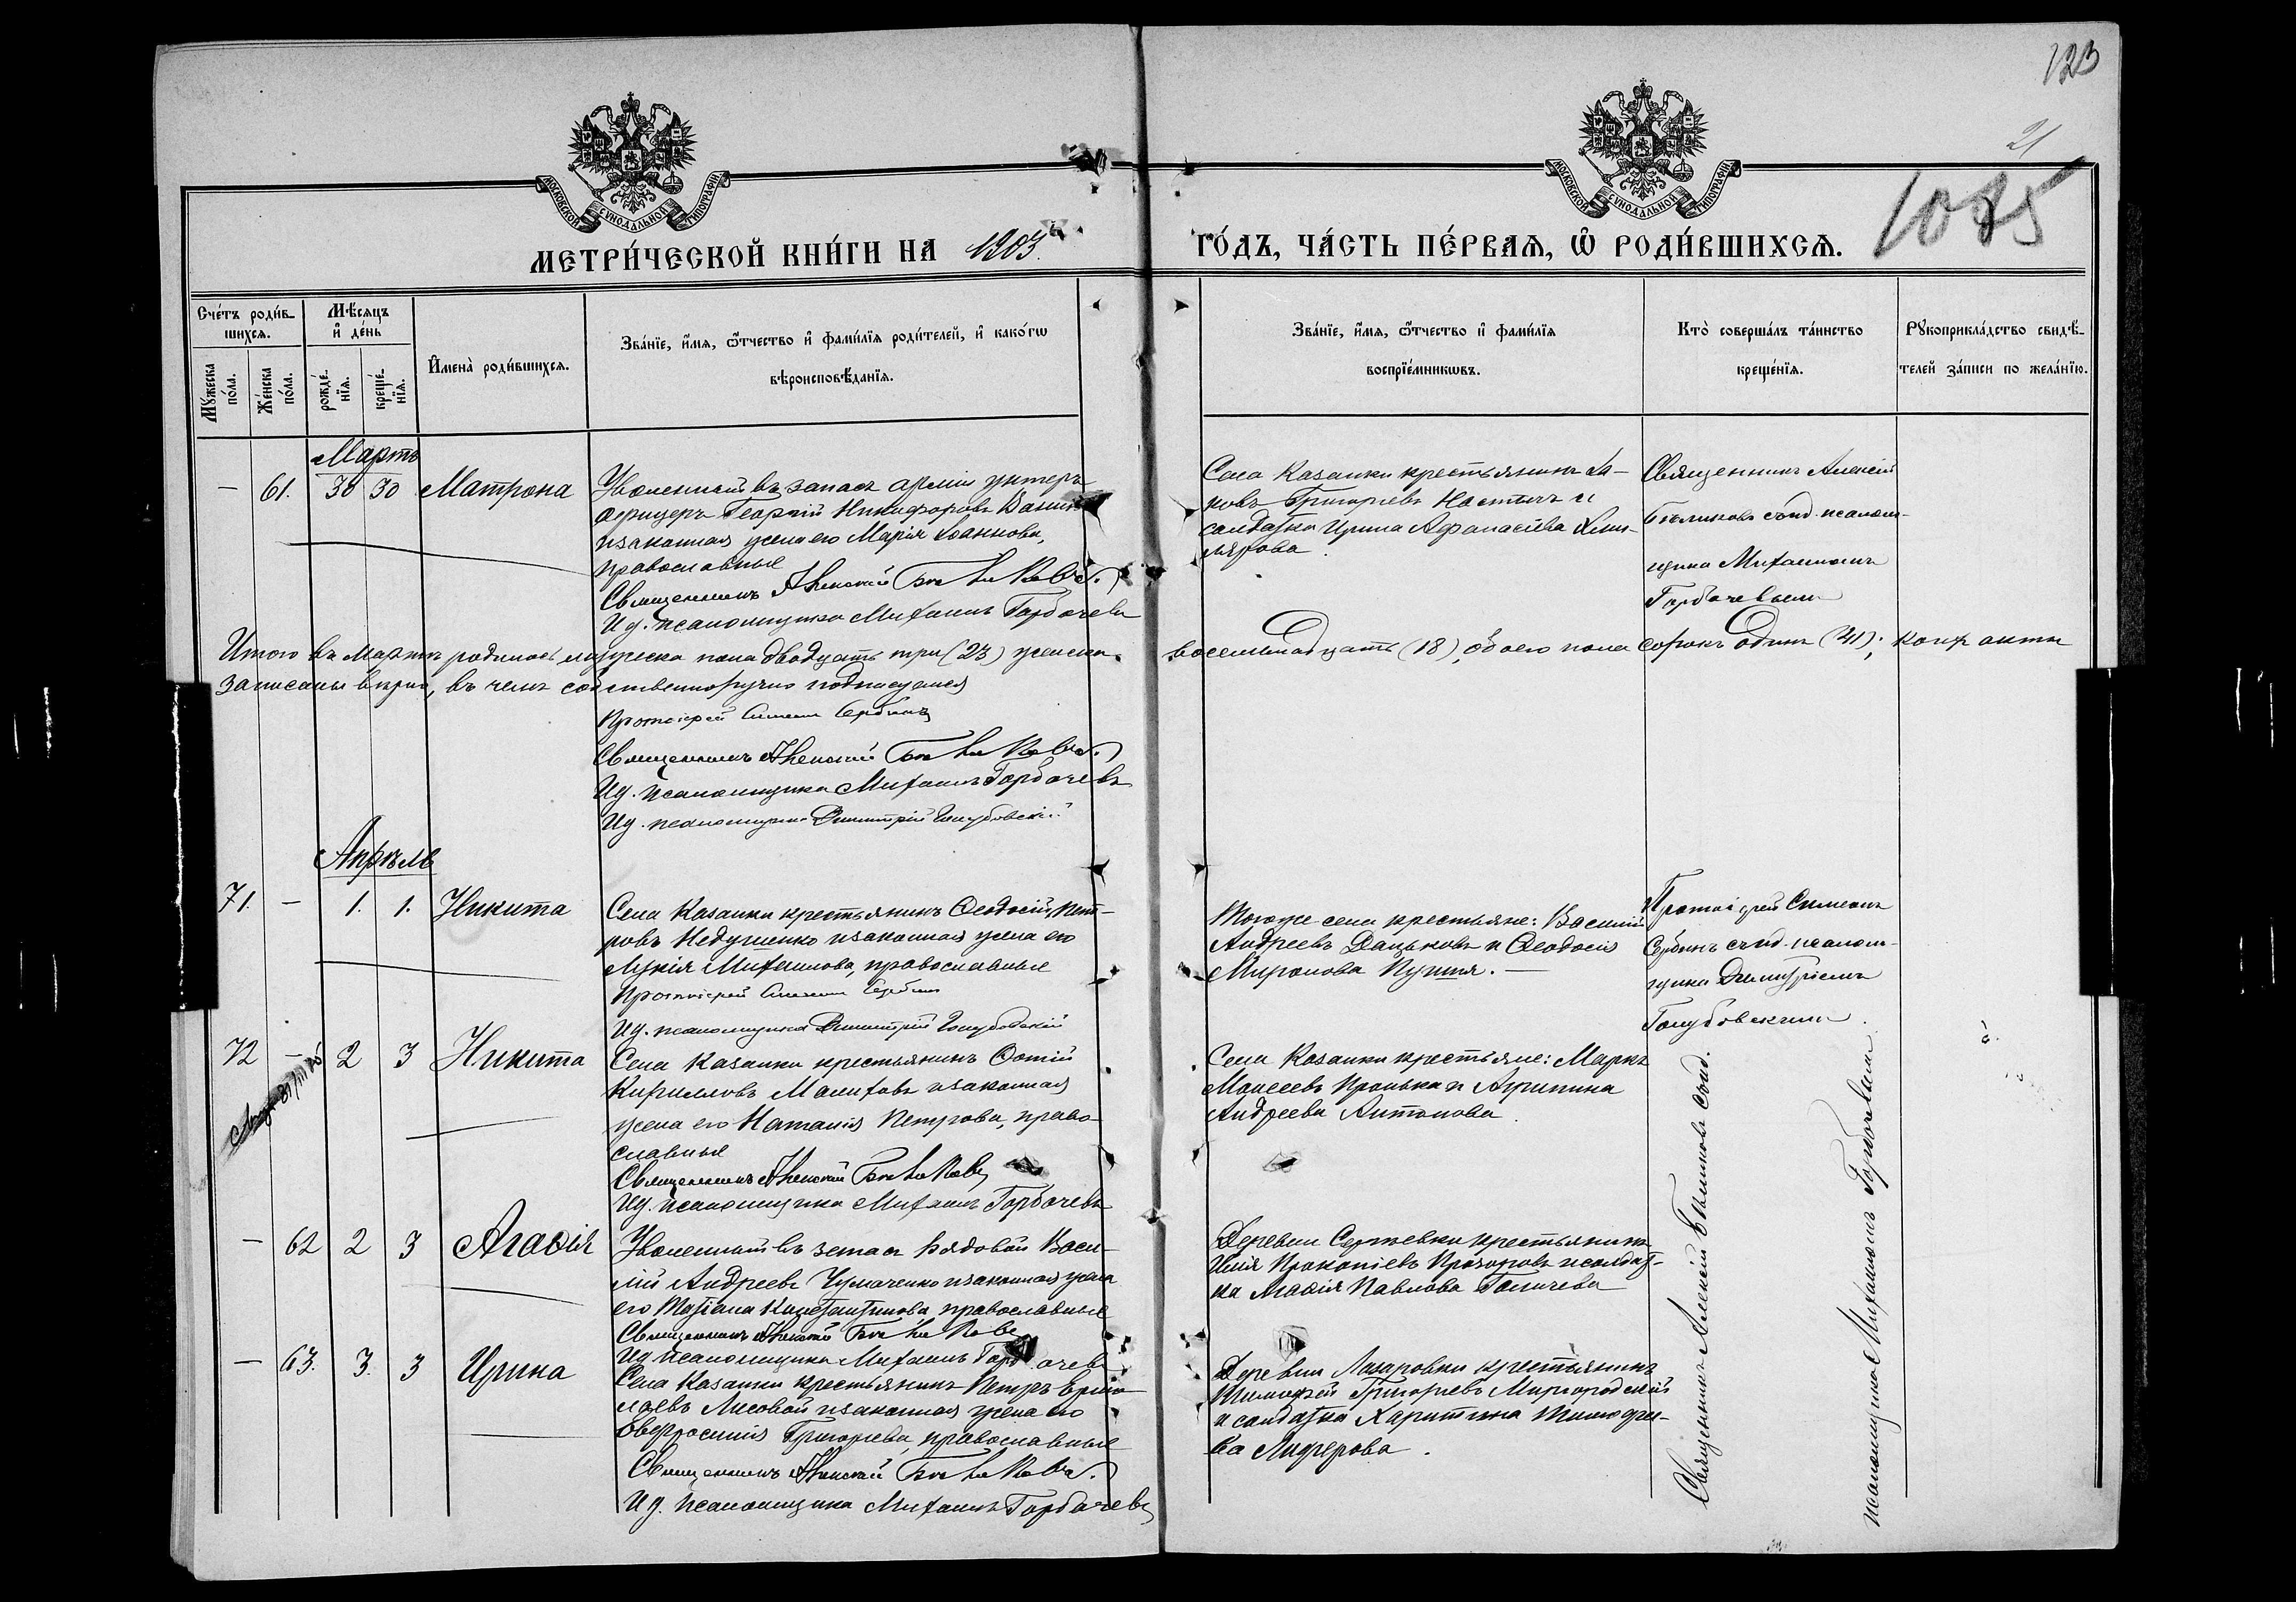 123
21
1085
МОСКОВСКОЙ СѴНОДАЛЬНОЙ ТИПОГРАФІИ
МОСКОВСКОЙ СѴНОДАЛЬНОЙ ТИПОГРАФІИ
МЕТРИ́ЧЕСКОЙ КНИ́ГИ НА 1903.
ГО́ДЪ, ЧА́СТЬ ПЕ́РВАѦ, Ѡ҆ РОДИ́ВШИХСѦ.
Сче́тъ роди́в-
шихсѧ.
Мꙋ́жеска
по́ла.
Же́нска
по́ла.
Мѣ́сѧцъ
и҆ де́нь
рожде́-
нїѧ.
креще́-
нїѧ.
И҆мена̀ роди́вшихсѧ.
Зва́нїе, и҆́мѧ, ѻ҆́тчество и҆ фами́лїѧ роди́телей, и҆ како́гѡ
вѣроисповѣ́данїѧ.
Зва́нїе, и҆́мѧ, ѻ҆́тчество и҆ фами́лїѧ
воспрїе́мникѡвъ.
Кто̀ соверша́лъ та́инство
креще́нїѧ.
Рꙋкоприкла́дство свидѣ́-
телей за́писи по жела́нїю.
Мартъ
— 61. 30 30 Матрона
Уволенный въ запасъ арміи унтеръ
офицеръ Георгій Никифоровъ
и законная жена его Марія Іоаннова,
православные
Священникъ Алексій Бѣликовъ.
И д. псаломщика Михаилъ Горбачевъ
Села Казанки крестьянинъ Іа-
ковъ Григорьевъ и
солдатка Ирина Афанасіева
Священникъ Алексій
Бѣликовъ съ и д. псалом-
щика Михаиломъ
Горбачевымъ
Итого въ Мартѣ родилось мужеска пола двадцать три (23) женска
восемьнадцать (18), обоего пола сорокъ одинъ (41); акты
записаны вѣрно, въ чемъ собственноручно подписуемся
Протоіерей Симеонъ Сербинъ
Священникъ Алексій Бѣликовъ.
И д. псаломщика Михаилъ Горбачевъ
И д. псаломщика Димитрій Голубовскій
Апрѣль
71. — 1. 1. Никита
Села Казанки крестьянинъ Ѳеодосій Пет-
ровъ Недушенко и законная жена его
Лукія Михаилова, православные
Протоіерей Симеонъ Сербинъ
И д. псаломщика Димитрій Голубовскій
Тогоже села крестьяне: Василій
Андреевъ Дацьковъ и Ѳеодосія
Миронова Пушня. —
Протоіерей Симеонъ
Сербинъ съ и д. псалом-
щика Димитріемъ
Голубовскимъ.
72 — 2 3 Никита
Села Казанки крестьянинъ Фотій
Кирилловъ Малиховъ и законная
жена его Наталія Петрова, право-
славные
Священникъ Алексій Бѣликовъ
И д. псаломщика Михаилъ Горбачевъ
Села Казанки крестьяне: Маркъ
Моисеевъ Пронька и Агрипина
Андреева Антонова.
— 62 2 3 Агаѳія
Уволенный въ запасъ рядовой Васи-
лій Андреевъ Чумаченко и законная жена
его Татіана Константинова, православные
Священникъ Алексій Бѣликовъ
И д. псаломщика Михаилъ Горбачевъ
Деревни Сергѣевки крестьянинъ
Илія Прокопіевъ Прохоровъ и солдат-
ка Агаѳія Павлова Галичева
— 63. 3. 3 Ирина
Села Казанки крестьянинъ Петръ Ермо-
лаевъ Лисовой и законная жена его
Евфросинія Григорьева, православные
Священникъ Алексій Бѣликовъ.
И д. псаломщика Михаилъ Горбачевъ
Деревни Лазаровки крестьянинъ
Тимофей Григорьевъ Миргородскій
и солдатка Харитина Тимофее-
ва Лиферова.
Священникъ Алексій Бѣликовъ съ и д.
псаломщика Михаиломъ Горбачевымъ